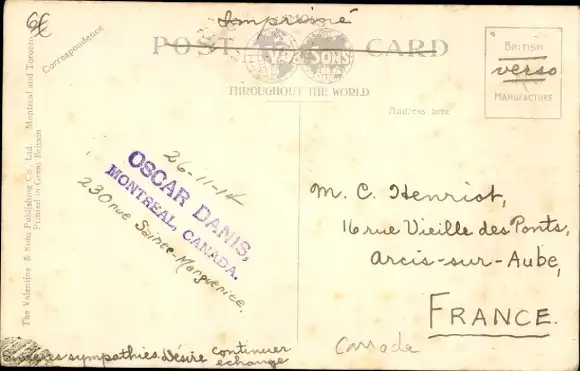 6f
Imprimé
POST CARD
& SONS
THROUGHOUT THE WORLD
Correspondence
Address here
BRITISH
verso
MANUFACTURE
The Valentine & Sons Publishing Co., Ltd. Montreal and Toronto
Printed in Great Britain
26-11-14
OSCAR DANIS,
MONTREAL, CANADA.
230 rue Sainte-Marguerite.
M. C. Henriot,
16 rue Vieille des Ponts,
Arcis-sur-Aube,
FRANCE.
Canada
sympathies. Désire continuer
échange